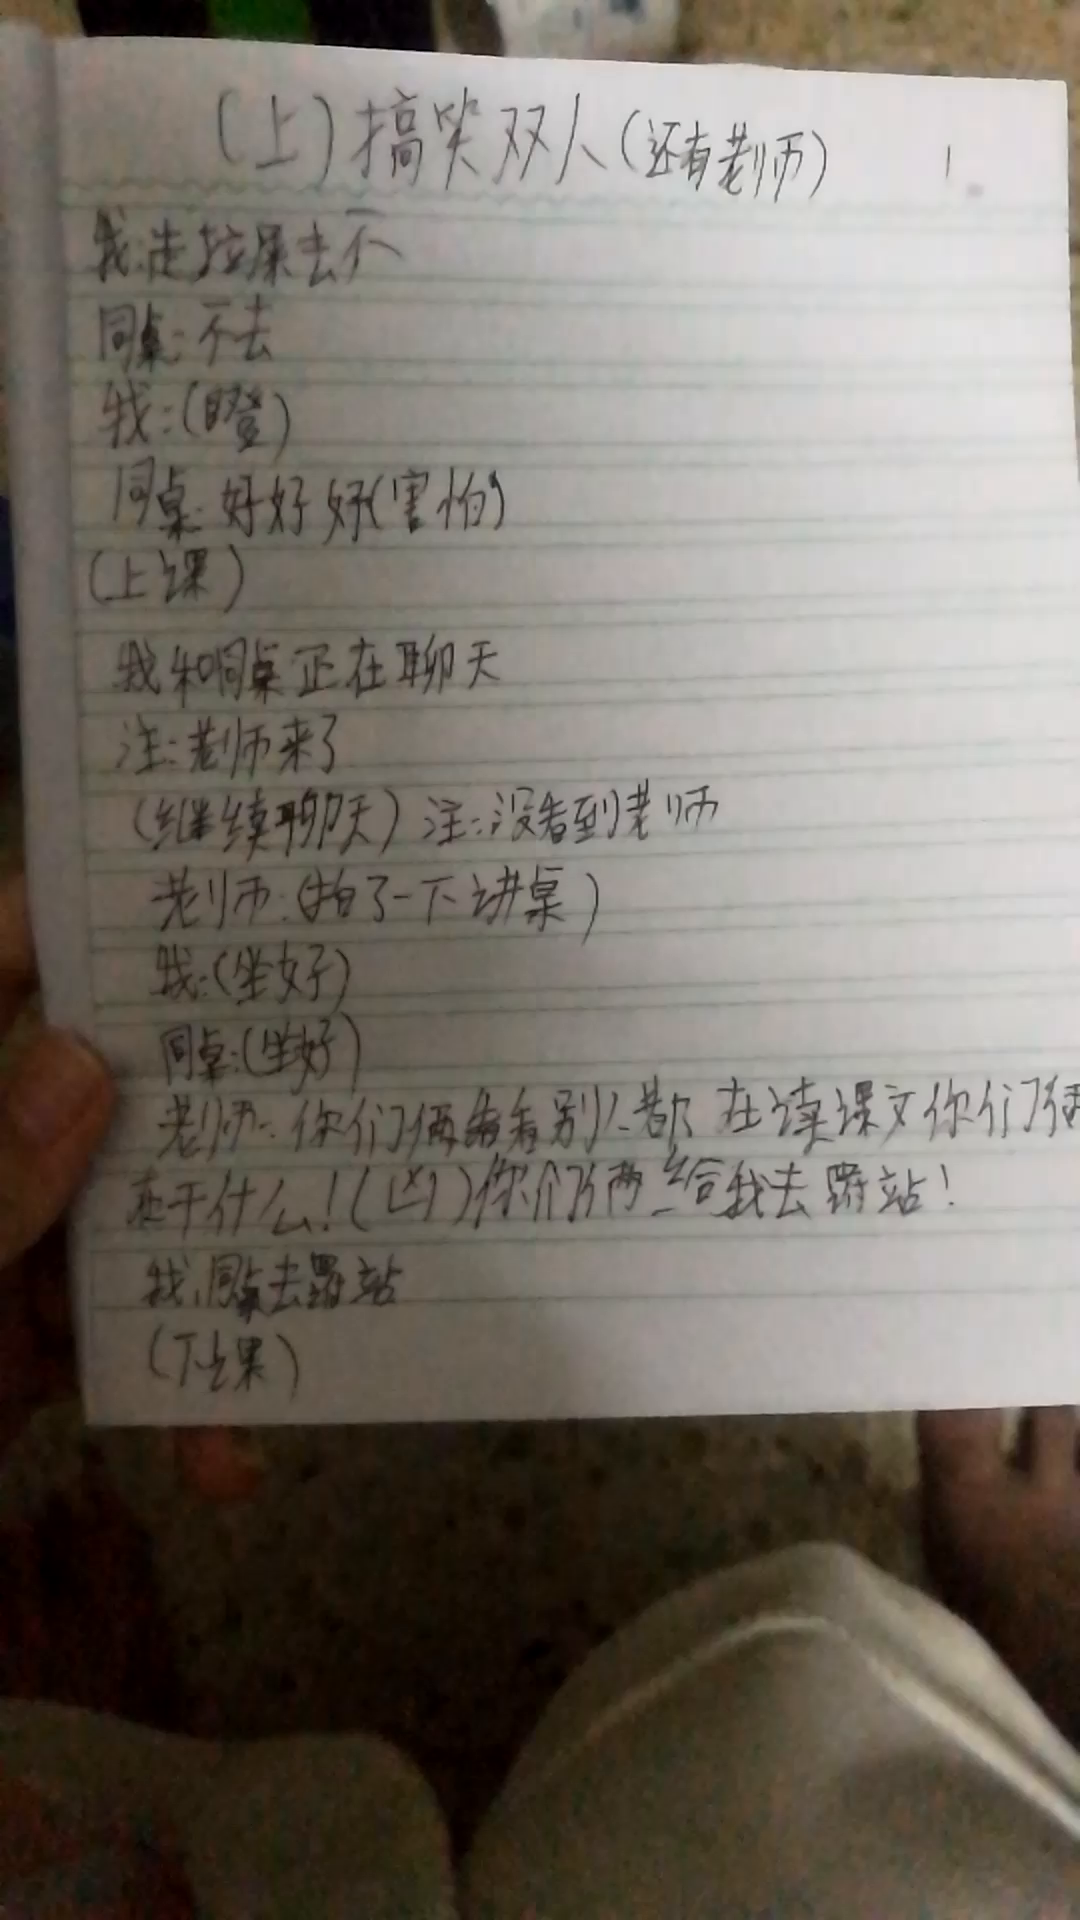 (上)搞笑双人(还有老师) 1
我:走拉屎去不
同桌:不去
我:(瞪)
同桌:好好好(害怕)
(上课)
我和同桌正在聊天
注:老师来了
(继续聊天)注:没看到老师
老师:(拍了一下讲桌)
我:(坐好)
同桌:(坐好)
老师:你们俩看看别人都在读课文你们俩
在干什么!(凶)你们两给我去罚站!
我、同桌去罚站
(下课)